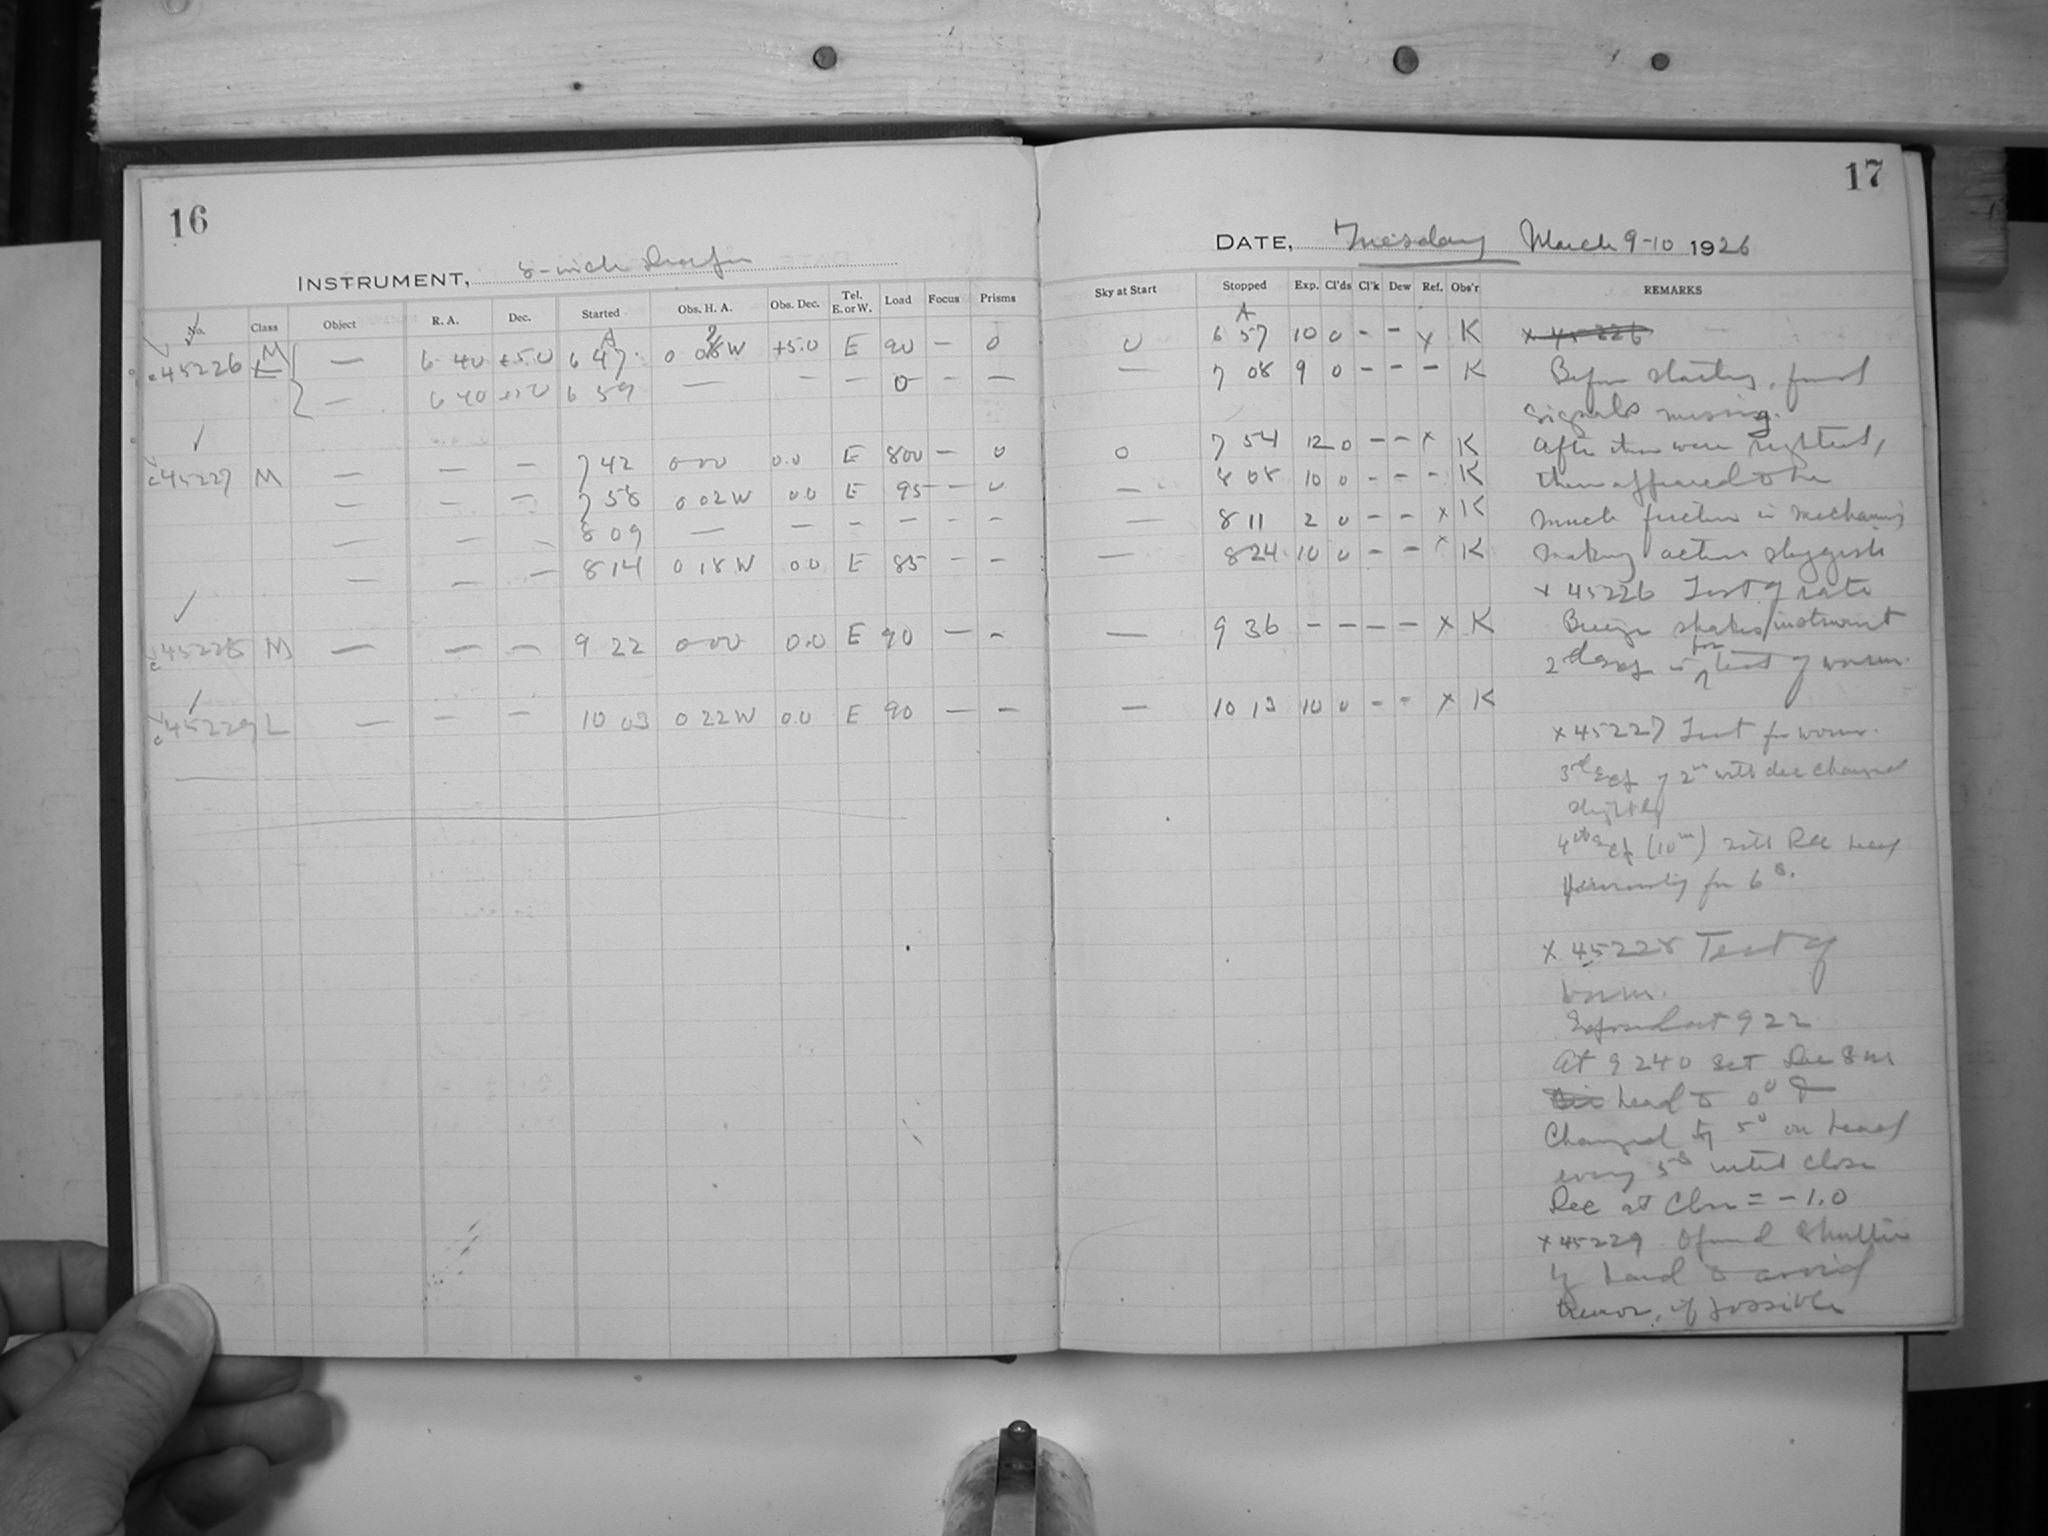 16
INSTRUMENT, 8-inch Draper
No. Class Object R. A. Dec. Started Obs. H. A. Obs. Dec. Tel. E. or W. Load Focus Prisms
c45226 M — 6 40 +5.0 6 47 W +5.0 E 90 — 0
— 6 40 6 59 — — — 0 — —
c45227 M — — — 7 42 0 00 0.0 E 800 — 0
— — — 7 58 0 02 W 0.0 E 95 — 0
— — — 8 09 — — — — — —
— — — 8 14 0 18 W 0.0 E 85 — —
c45228 M — — — 9 22 0 00 0.0 E 90 — —
c45229 L — — — 10 03 0 22 W 0.0 E 90 — —
17
DATE, Tuesday March 9-10 1926
Sky at Start Stopped Exp. Cl'ds Cl'k Dew Ref. Obs'r REMARKS
A
0 6 57 10 0 - - x K x 45226
— 7 08 9 0 - - - K Before starting, found
signals missing.
0 7 54 12 0 - - x K After these were righted,
— 8 08 10 0 - - - K there appeared to be
— 8 11 2 0 - - x K much friction in mechanism
— 8 24 10 0 - - x K making action sluggish
x 45226 Test of rate
— 9 36 - - - - x K Breeze shakes instrument
2nd for test of worm.
— 10 13 10 0 - - x K
x 45227 Test for worm.
3rd Exp of 2m with dec changed
slightly
4th Exp (10m) with Dec
for 6s.
x 45228 Test of
worm.
Exposed at 9 22
At 9 24 0 set Dec
head to 0° &
Changed by 5° on head
every 5s until close
Dec at Close = -1.0
x 45229 Opened Shutter
by hand to avoid
tremor, if possible